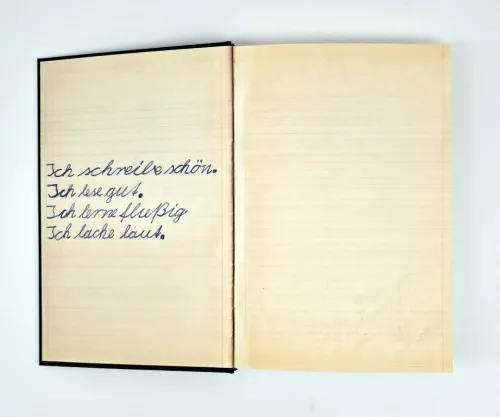 Ich schreibe schön.
Ich lese gut.
Ich lerne flußig
Ich lache laut.